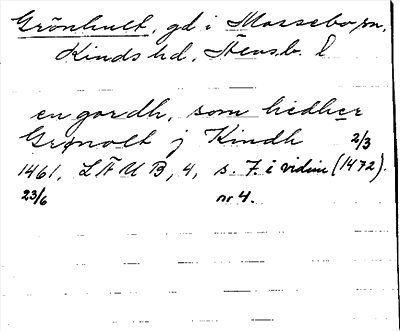 Grönhult, gd i Mossebo sn,
Kinds hd, Älvsb. l
en gardh, som hedher
Grønolt j Kindh
2/3
1461, LÄUB, 4, s. 7. i vidim (1472).
23/6 nr 4.